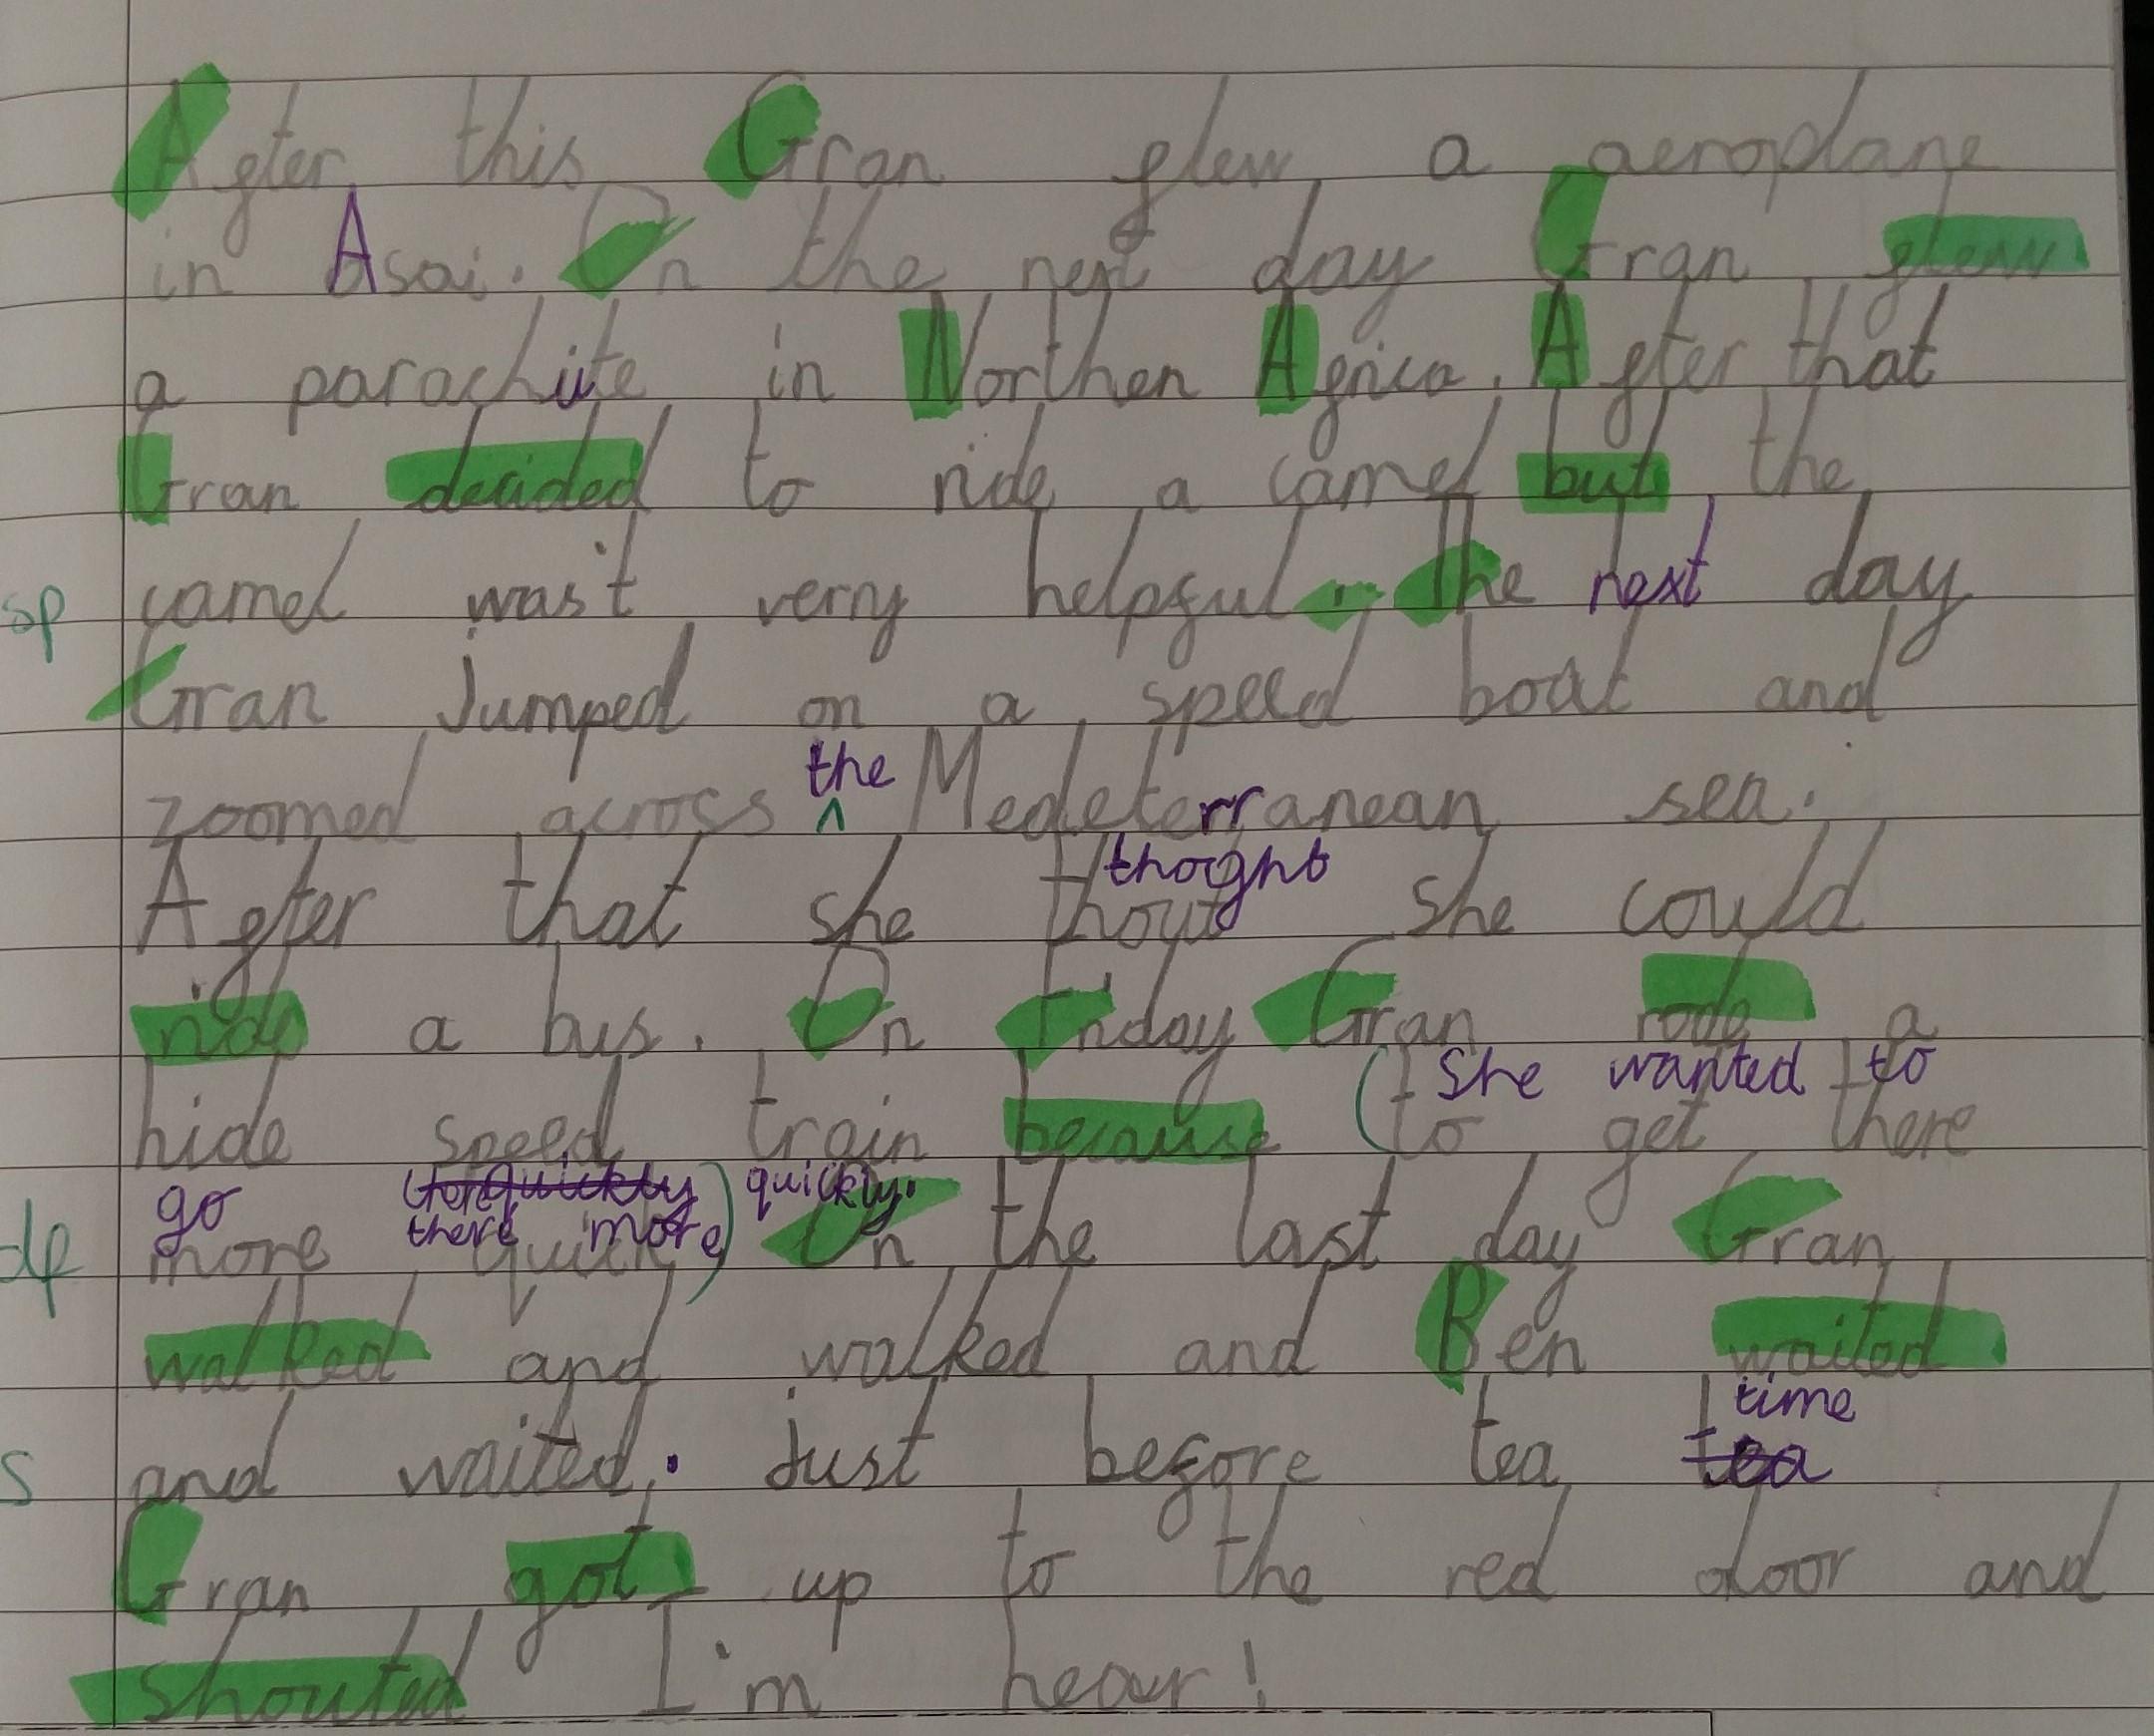 After this Gran flew a aeroplane
in Asai. On the next day Gran flew
a parachute in Northen Africa. After that
Gran decided to ride a camel but the
sp camel was't very helpful. The next day
Gran Jumped on a speed boat and
the
zoomed across ^ Medeterranean sea.
thoght
After that she thout She could
ride a bus. On Friday Gran rode a
She wanted to
hide speed train because (to get there
go there quickly quickly.
there more
dp more quick) On the last day Gran
walked and walked and Ben waited
time
s and waited. Just before tea tea
Gran got up to the red door and
shouted I'm hear!